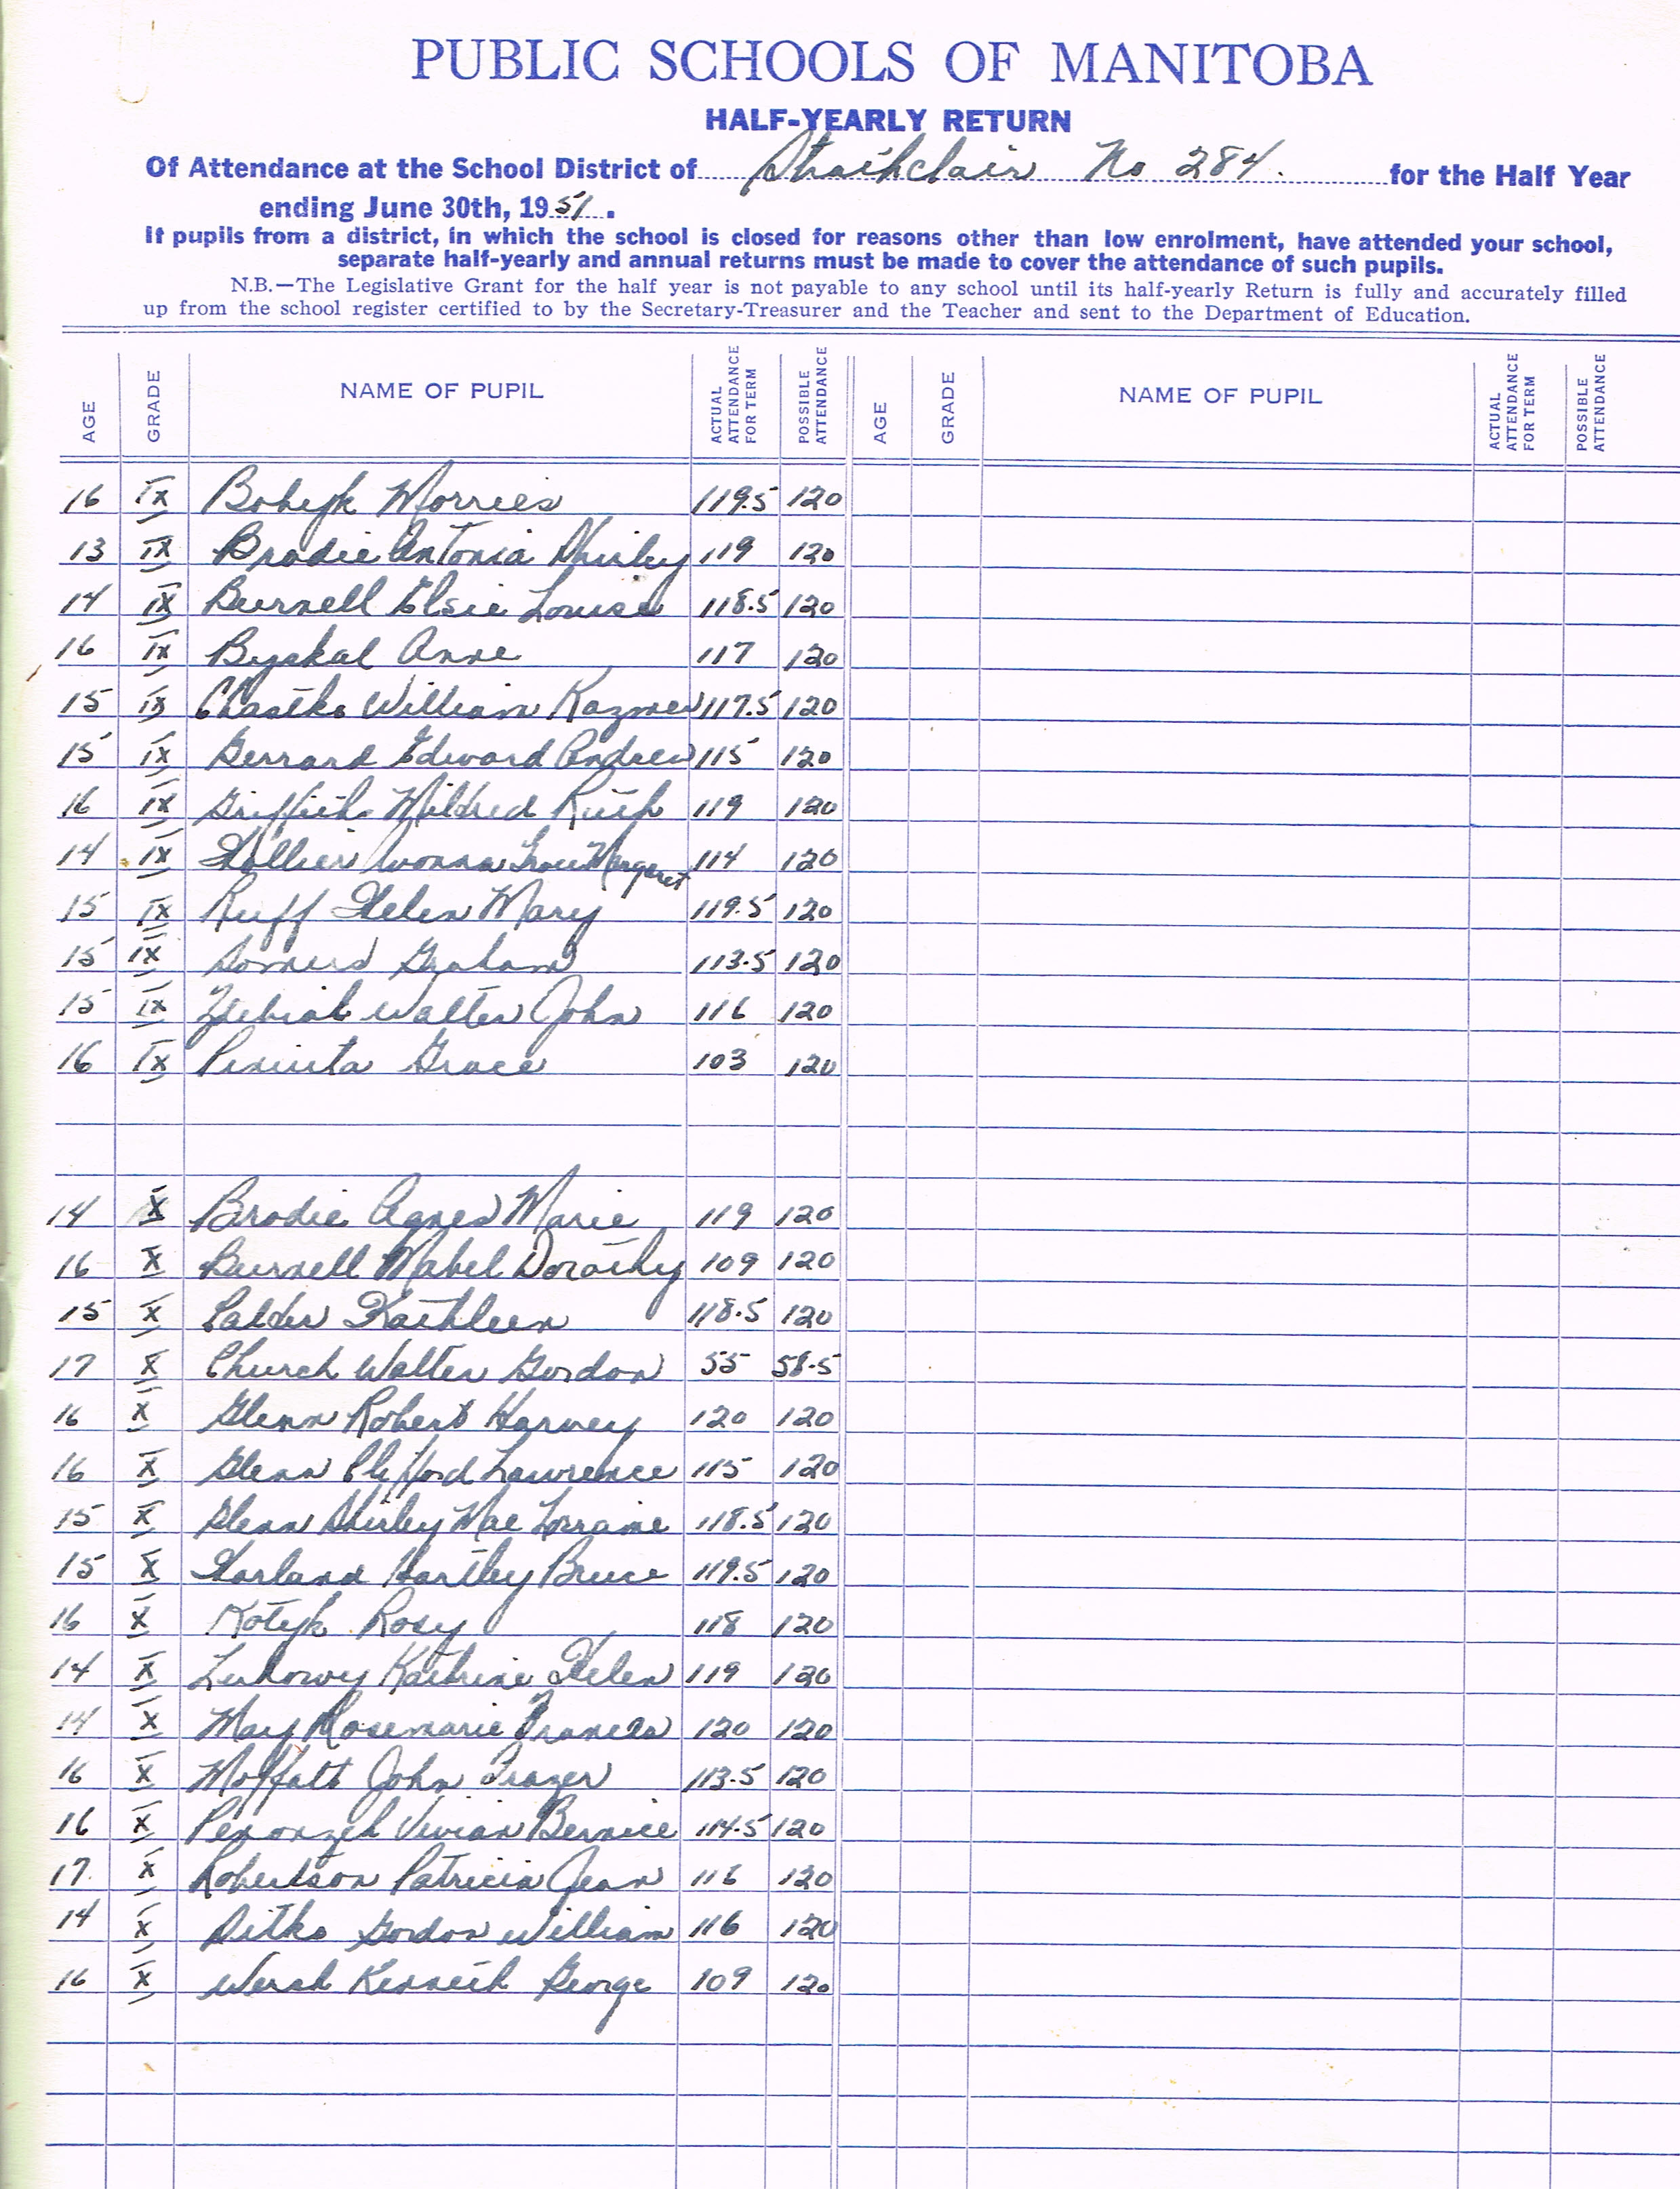 PUBLIC SCHOOLS OF MANITOBA
HALF-YEARLY RETURN
Of Attendance at the School District of Strathclair No 284. for the Half Year
ending June 30th, 1951.
If pupils from a district, in which the school is closed for reasons other than low enrolment, have attended your school,
separate half-yearly and annual returns must be made to cover the attendance of such pupils.
N.B.—The Legislative Grant for the half year is not payable to any school until its half-yearly Return is fully and accurately filled
up from the school register certified to by the Secretary-Treasurer and the Teacher and sent to the Department of Education.
AGE GRADE NAME OF PUPIL ACTUAL ATTENDANCE FOR TERM POSSIBLE ATTENDANCE AGE GRADE NAME OF PUPIL ACTUAL ATTENDANCE FOR TERM POSSIBLE ATTENDANCE
16 IX Bohejk Morries 119.5 120
13 IX Brodie Antonia Shirley 119 120
14 IX Burnell Elsie Louise 118.5 120
16 IX Byskal Anne 117 120
15 IX Chastko William Kazmer 117.5 120
15 IX Gerrard Edward Andrew 115 120
16 IX Griffith Mildred Ruth 119 120
14 IX Hollier Ivonna Margaret 114 120
15 IX Ruff Helen Mary 119.5 120
15 IX Somers Graham 113.5 120
15 IX Walter John 116 120
16 IX Grace 103 120
14 X Brodie Agnes Marie 119 120
16 X Burnell Mabel Dorothy 109 120
15 X Calder Kathleen 118.5 120
17 X Church Walter Gordon 55 58.5
16 X Glenn Robert Harvey 120 120
16 X Glenn Clifford Lawrence 115 120
15 X Glenn Shirley Mae Lorraine 118.5 120
15 X Harland Hartley Bruce 119.5 120
16 X Kotyk Rosy 118 120
14 X Luhowy Kathrine Helen 119 120
14 X May Rosemarie Frances 120 120
16 X Moffatt John Frazer 113.5 120
16 X Vivian Bernice 114.5 120
17. X Robertson Patricia Jean 116 120
14 X Sitko Gordon William 116 120
16 X Wersh Kenneth George 109 120